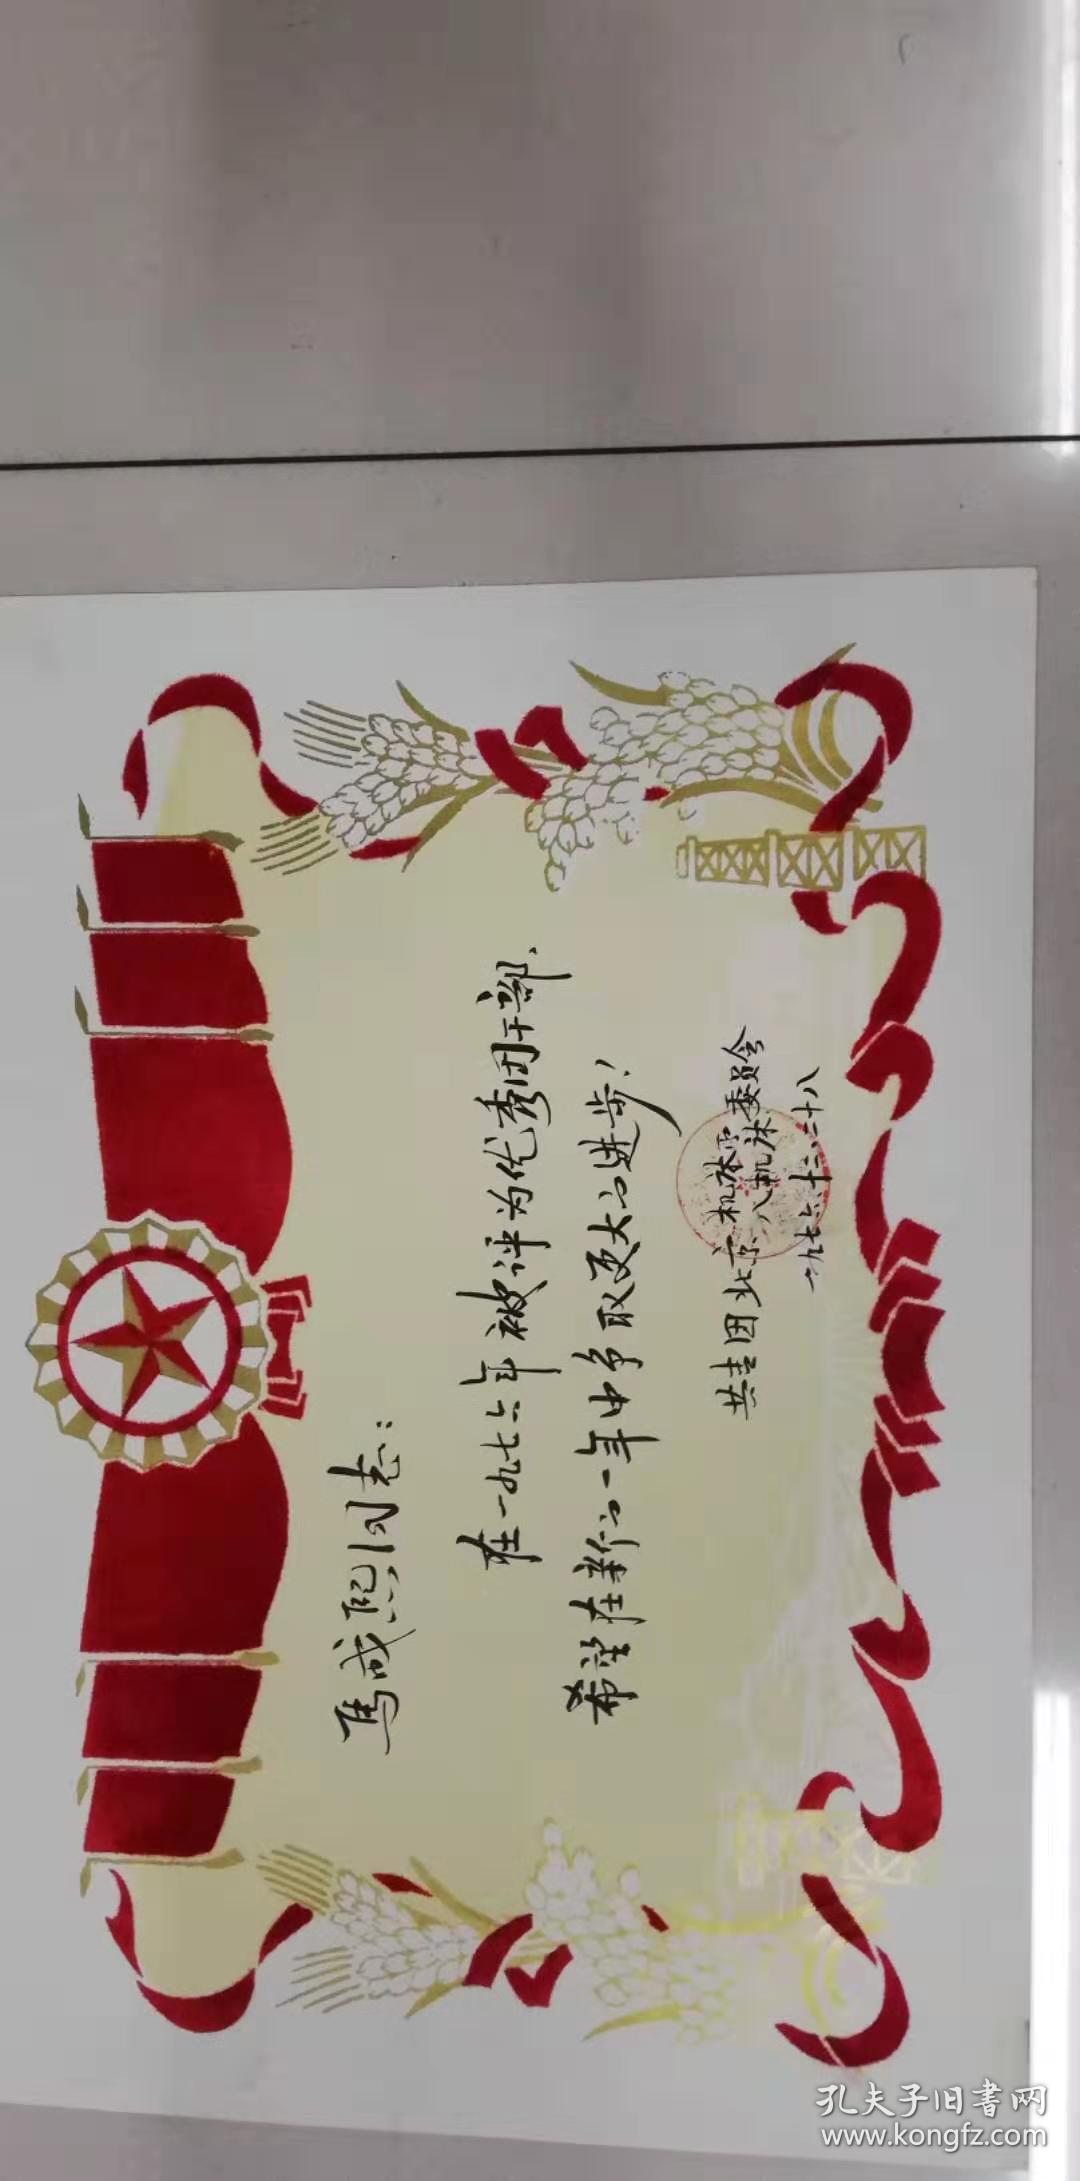 马成熙同志：
在一九七六年被评为优秀团干部、
希望在新的一年中争取更大的进步！
共青团北京八机床委员会
一九七六.十二.二十八
孔夫子旧书网
www.kongfz.com